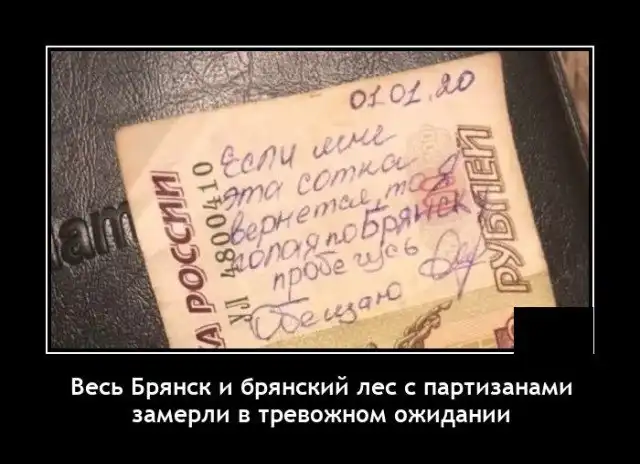 01.01.20
Если мне
эта сотка
вернется, то я
голая по Брянск
пробегусь
Обещаю
А РОССИИ
ХЛ 4800410
РУБЛЕЙ
Весь Брянск и брянский лес с партизанами
замерли в тревожном ожидании